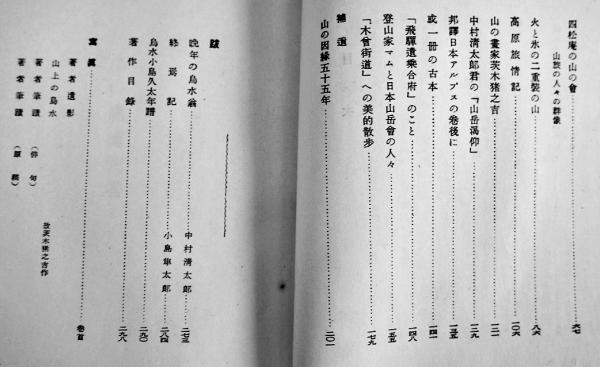 四松庵の山の會……六七
山旅の人々の群像
火と氷の二重奏の山……八六
高原旅情記……一〇六
山の畫家茨木猪之吉……一三一
中村清太郎君の『山岳渇仰』……一三九
邦譯日本アルプスの卷後に……一三五
或一冊の古本……一四一
「飛驒遺乘合府」のこと……一四八
登山家マムと日本山岳會の人々……一五五
「木曾街道」への美的散步……一七九
補遺
山の因緣五十五年……二〇一
跋
晩年の烏水翁……中村清太郎……二七五
終焉記……小島隼太郎……二八四
烏水小島久太年譜……二九〇
著作目錄……二九八
寫眞……卷首
著者遺影
山上の烏水 故茨木猪之吉作
著者筆蹟（俳句）
著者筆蹟（原稿）